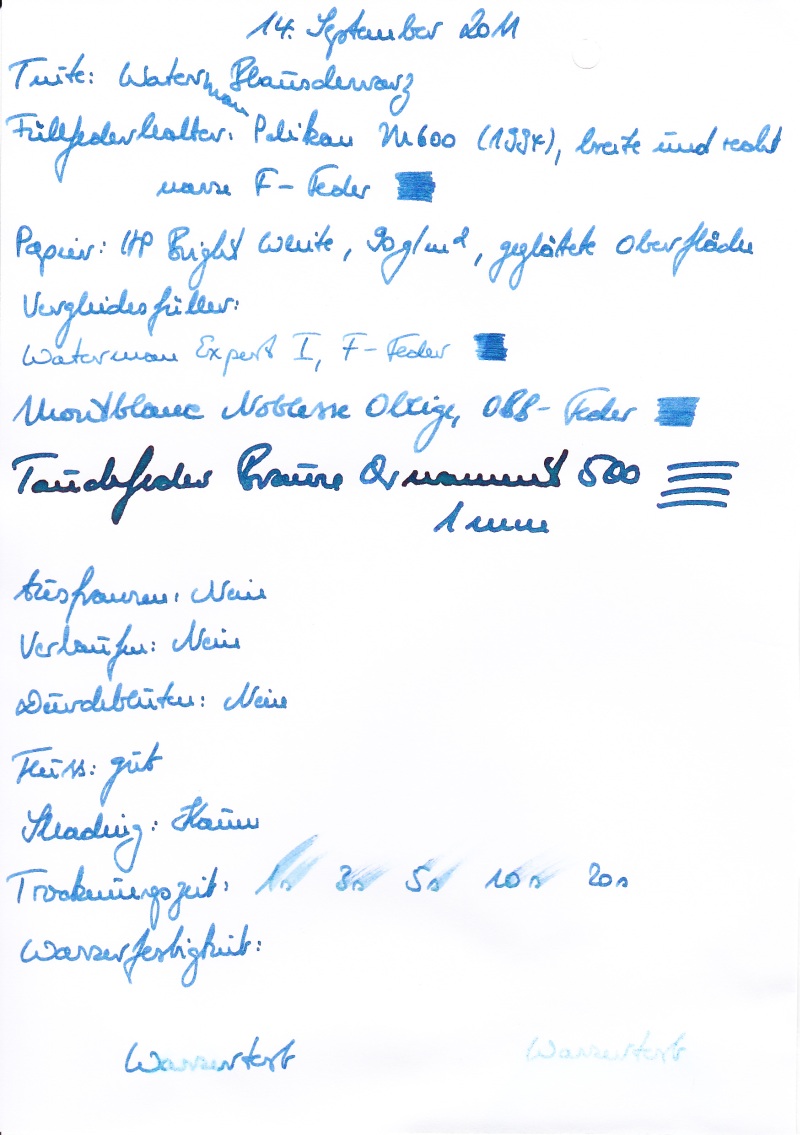 14. September 2011
Tinte: Waterman Blauschwarz
Füllfederhalter: Pelikan M600 (1994), breite und recht
nasse F-Feder
Papier: HP Bright White, 90g/m², geglättete Oberfläche
Vergleichsfüller:
Waterman Expert I, F-Feder
Montblanc Noblesse Oblige, OBB-Feder
Tauchfeder Brause Ornament 500
1 mm
Ausfransen: Nein
Verlaufen: Nein
Durchbluten: Nein
Fluss: gut
Shading: Kaum
Trocknungszeit: 1s 3s 5s 10s 20s
Wasserfestigkeit:
Wassertest Wassertest